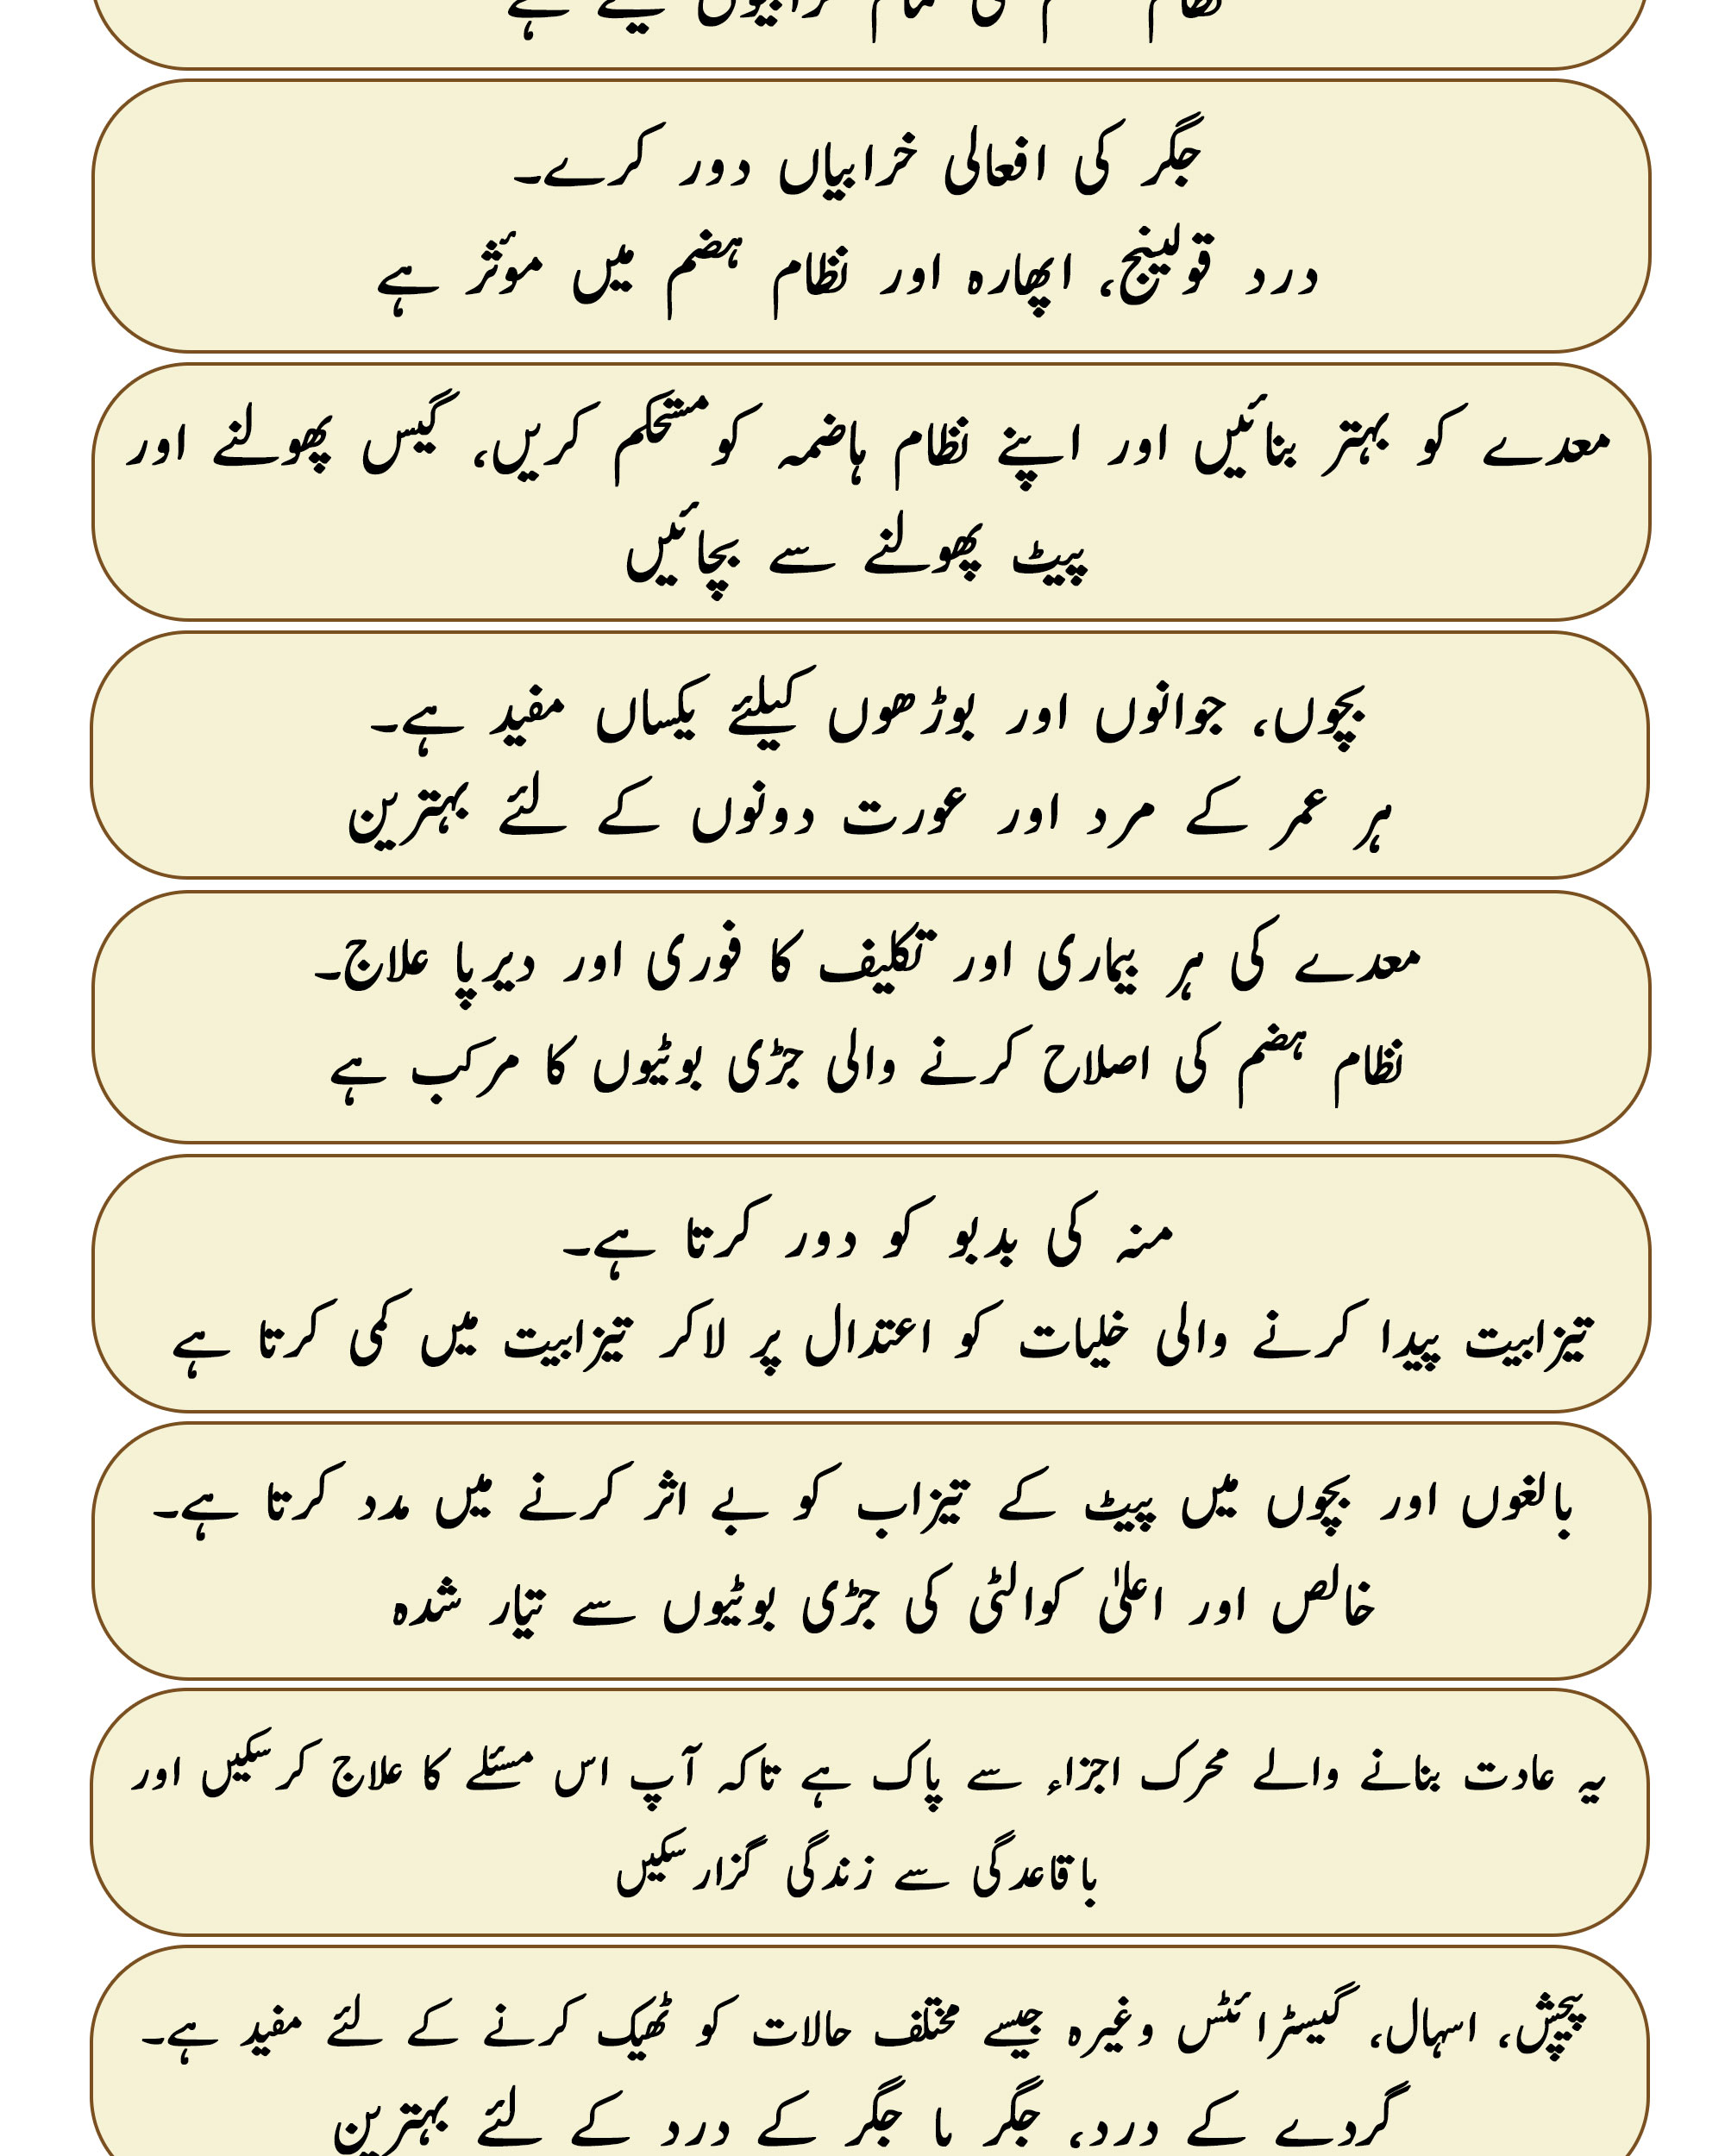 جگر کی افعالی خرابیاں دور کرے۔
درد قولینج، اپھارہ اور نظام ہضم میں موئثر ہے
معدے کو بہتر بنائیں اور اپنے نظام ہاضمہ کو مستحکم کریں، گیس پھولنے اور
پیٹ پھولنے سے بچائیں
بچوں، جوانوں اور بوڑھوں کیلئے یکساں مفید ہے۔
ہر عمر کے مرد اور عورت دونوں کے لئے بہترین
معدے کی ہر بیماری اور تکلیف کا فوری اور دیرپا علاج۔
نظام ہضم کی اصلاح کرنے والی جڑی بوٹیوں کا مرکب ہے
منہ کی بدبو کو دور کرتا ہے۔
تیزابیت پیدا کرنے والی خلیات کو اعتدال پر لاکر تیزابیت میں کمی کرتا ہے
بالغوں اور بچوں میں پیٹ کے تیزاب کو بے اثر کرنے میں مدد کرتا ہے۔
خالص اور اعلیٰ کوالٹی کی جڑی بوٹیوں سے تیار شدہ
یہ عادت بنانے والے محرک اجزاء سے پاک ہے تاکہ آپ اس مسئلے کا علاج کرسکیں اور
باقاعدگی سے زندگی گزارسکیں
پیچش، اسہال، گیسٹرائٹس وغیرہ جیسے مختلف حالات کو ٹھیک کرنے کے لئے مفید ہے۔
گردے کے درد، جگر یا جگر کے درد کے لئے بہترین